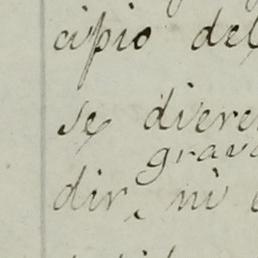 cipio del
se diere
grava
dir, ni